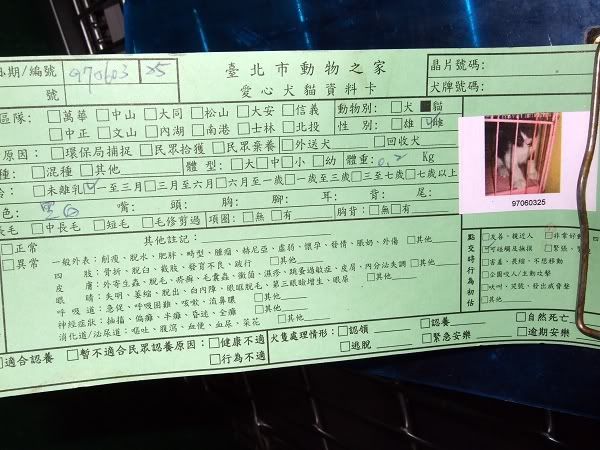 日期/編號 970603 25 臺北市動物之家 晶片號碼:
號 愛心犬貓資料卡 犬牌號碼:
區隊: □萬華 □中山 □大同 □松山 □大安 □信義 動物別: □犬 ■貓
□中正 □文山 □內湖 □南港 □士林 □北投 性 別: □雄 □雌
原因: □環保局捕捉 □民眾拾獲 □民眾棄養 □外送犬 □回收犬
種: □混種 □其他 體型: □大 □中 □小 □幼 體重: 0.2 Kg
齡: □未離乳 □一至三月 □三月至六月 □六月至一歲 □一歲至三歲 □三至七歲 □七歲以上
色: 黑白 嘴: 頭: 胸: 腳: 耳: 背: 尾:
長毛 □中長毛 □短毛 □毛修剪過 項圈: □無 □有 胸背: □無 □有
97060325
□正常
□異常
其他註記:
一般外表: 削瘦、脫水、肥胖、畸型、腫瘤、赫尼亞、虛弱、懷孕、發情、脹奶、外傷 □其他
四 肢: 骨折、脫臼、截肢、發育不良、跛行 □其他
皮 膚: 外寄生蟲、脫毛、疥癬、毛囊蟲、黴菌、濕疹、跳蚤過敏症、皮屑、內分泌失調 □其他
眼 睛: 失明、萎縮、脫出、白內障、眼瞼脫毛、第三眼瞼增生、眼屎 □其他
呼吸道: 急促、呼吸困難、咳嗽、流鼻膿 □其他
神經症狀: 抽搐、偏癱、半癱、昏迷、全癱 □其他
消化道/泌尿道: 嘔吐、腹瀉、血便、血尿、菜花 □其他
點交時行為初估
□友善、親近人 □非常好動
□可碰觸及撫摸 □緊張、
□害羞、畏縮、不想移動
□公開咬人/主動攻擊
□吠叫、哭號、發出威脅聲
□其他
適合認養 □暫不適合民眾認養原因: □健康不適 □行為不適
犬隻處理情形: □認領 □認養 □自然死亡
□逃脫 □緊急安樂 □逾期安樂